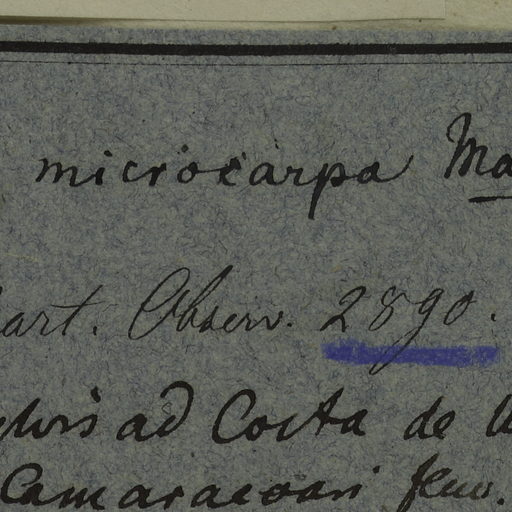 microcarpa Ma
art. Observ. 2890.
ad Costa de
Camaracoari fluv.